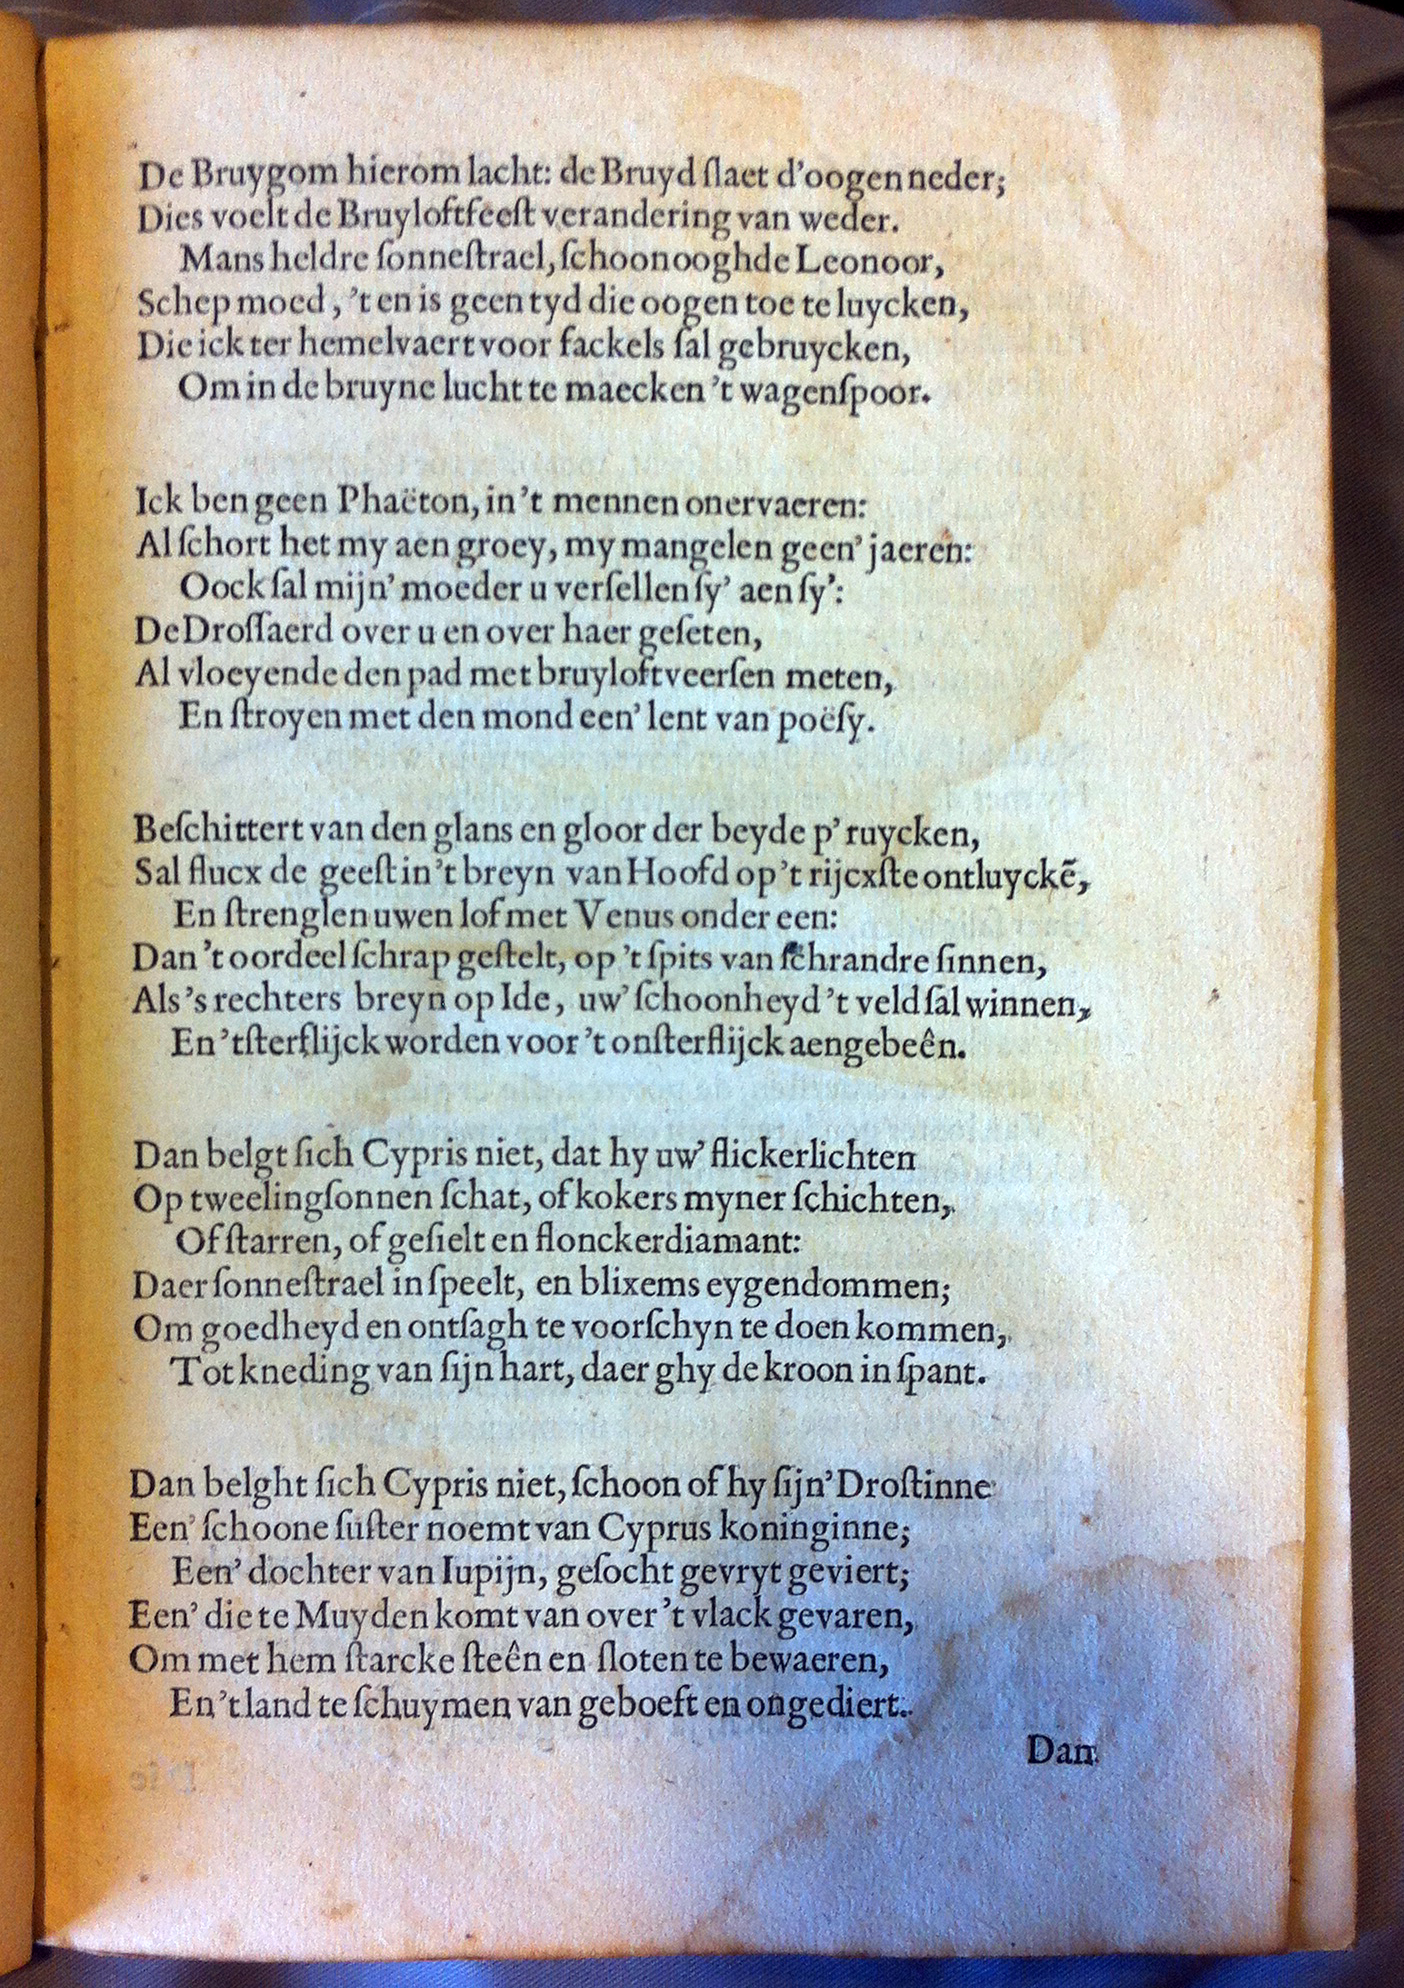 De Bruygom hierom lacht: de Bruyd ſlaet d'oogen neder;
Dies voelt de Bruyloftfeeſt verandering van weder.
Mans heldre ſonneſtrael, ſchoonooghde Leonoor,
Schep moed, 't en is geen tyd die oogen toe te luycken,
Die ick ter hemelvaert voor fackels ſal gebruycken,
Om in de bruyne lucht te maecken 't wagenſpoor.
Ick ben geen Phaëton, in 't mennen onervaeren:
Al ſchort het my aen groey, my mangelen geen' jaeren:
Oock ſal mijn' moeder u verſellen ſy' aen ſy':
De Droſſaerd over u en over haer geſeten,
Al vloeyende den pad met bruyloftveerſen meten,
En ſtroyen met den mond een' lent van poëſy.
Beſchittert van den glans en gloor der beyde p'ruycken,
Sal flucx de geeſt in 't breyn van Hoofd op 't rijcxſte ontluyckẽ,
En ſtrenglen uwen lof met Venus onder een:
Dan 't oordeel ſchrap geſtelt, op 't ſpits van ſchrandre ſinnen,
Als 's rechters breyn op Ide, uw' ſchoonheyd 't veld ſal winnen,
En 'tſterflijck worden voor 't onſterflijck aengebeên.
Dan belgt ſich Cypris niet, dat hy uw' flickerlichten
Op tweelingſonnen ſchat, of kokers myner ſchichten,
Of ſtarren, of geſielt en flonckerdiamant:
Daer ſonneſtrael in ſpeelt, en blixems eygendommen;
Om goedheyd en ontſagh te voorſchyn te doen kommen,
Tot kneding van ſijn hart, daer ghy de kroon in ſpant.
Dan belght ſich Cypris niet, ſchoon of hy ſijn' Droſtinne
Een' ſchoone ſuſter noemt van Cyprus koninginne;
Een' dochter van Iupijn, geſocht gevryt geviert;
Een' die te Muyden komt van over 't vlack gevaren,
Om met hem ſtarcke ſteên en ſloten te bewaeren,
En 't land te ſchuymen van geboeft en ongediert.
Dan